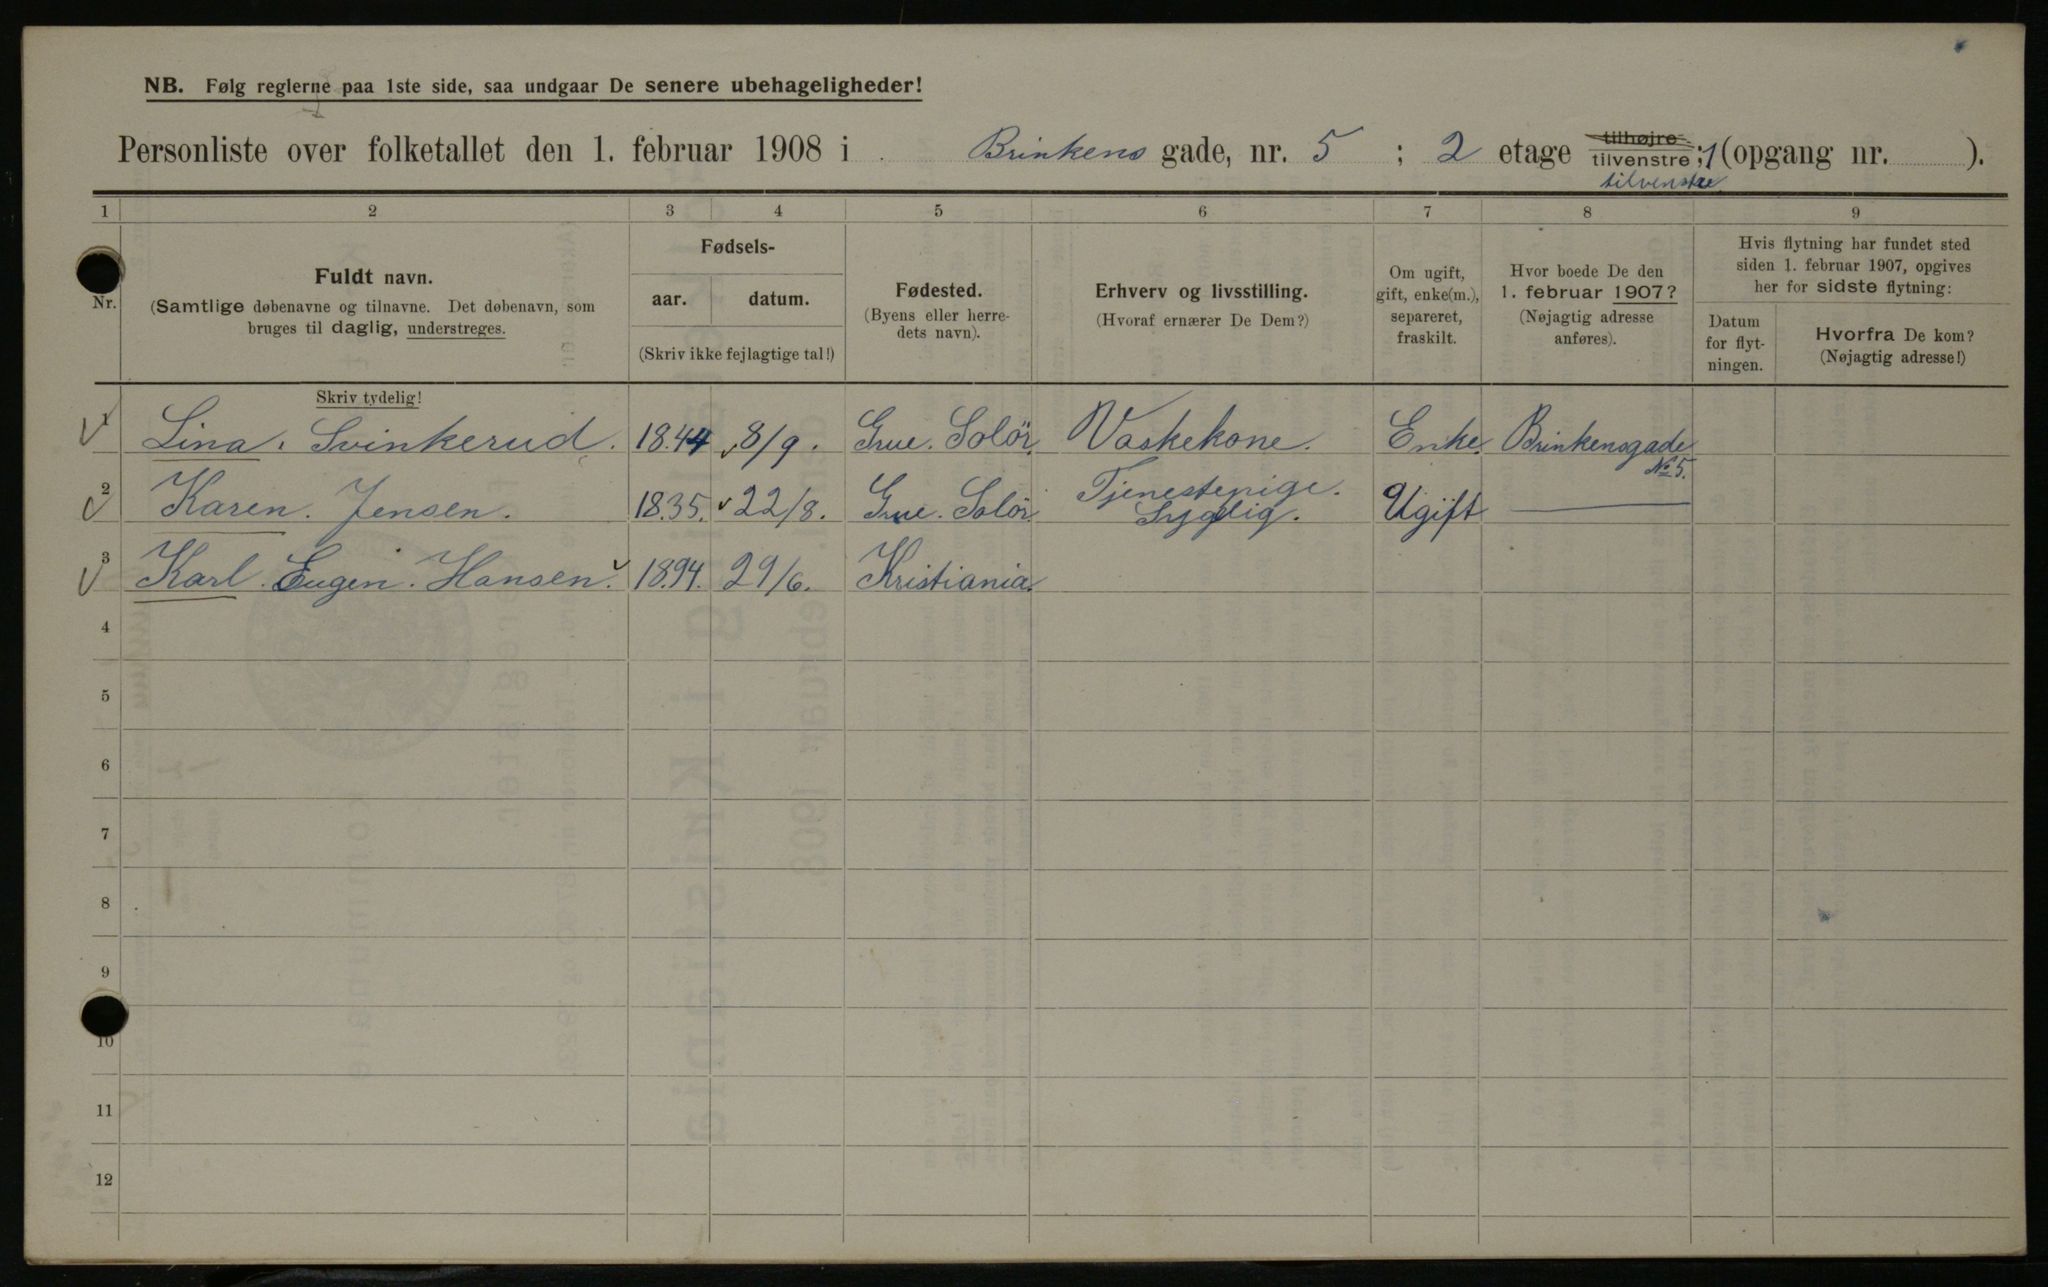 NB. Følg reglerne paa 1ste side, saa undgaar De senere ubehageligheder!
Personliste over folketallet den 1. februar 1908 i Brinkens gade, nr. 5 ; 2 etage tilhøjre tilvenstre ; 1 (opgang nr. ).
tilvenstre
1 2 3 4 5 6 7 8 9
Nr.
Fuldt navn.
(Samtlige døbenavne og tilnavne. Det døbenavn, som
bruges til daglig, understreges.
Fødsels-
aar. datum.
(Skriv ikke fejlagtige tal!)
Fødested.
(Byens eller herre-
dets navn).
Erhverv og livsstilling.
(Hvoraf ernærer De Dem?)
Om ugift,
gift, enke(m.),
separeret,
fraskilt.
Hvor boede De den
1. februar 1907?
(Nøjagtig adresse
anføres).
Hvis flytning har fundet sted
siden 1. februar 1907, opgives
her for sidste flytning:
Datum
for flyt-
ningen.
Hvorfra De kom?
(Nøjagtig adresse!)
Skriv tydelig!
1 Lina. Svinkerud. 18.44 8/9. Grue. Solör. Vaskekone. Enke. Brinkensgade
No 5.
2 Karen. Jensen. 18.35. 22/8. Grue. Solör. Tjenestepige. Ugift —
Syglig.
3 Karl. Eugen. Hansen 18.94. 29/6. Kristiania.
4
5
6
7
8
9
10
11
12